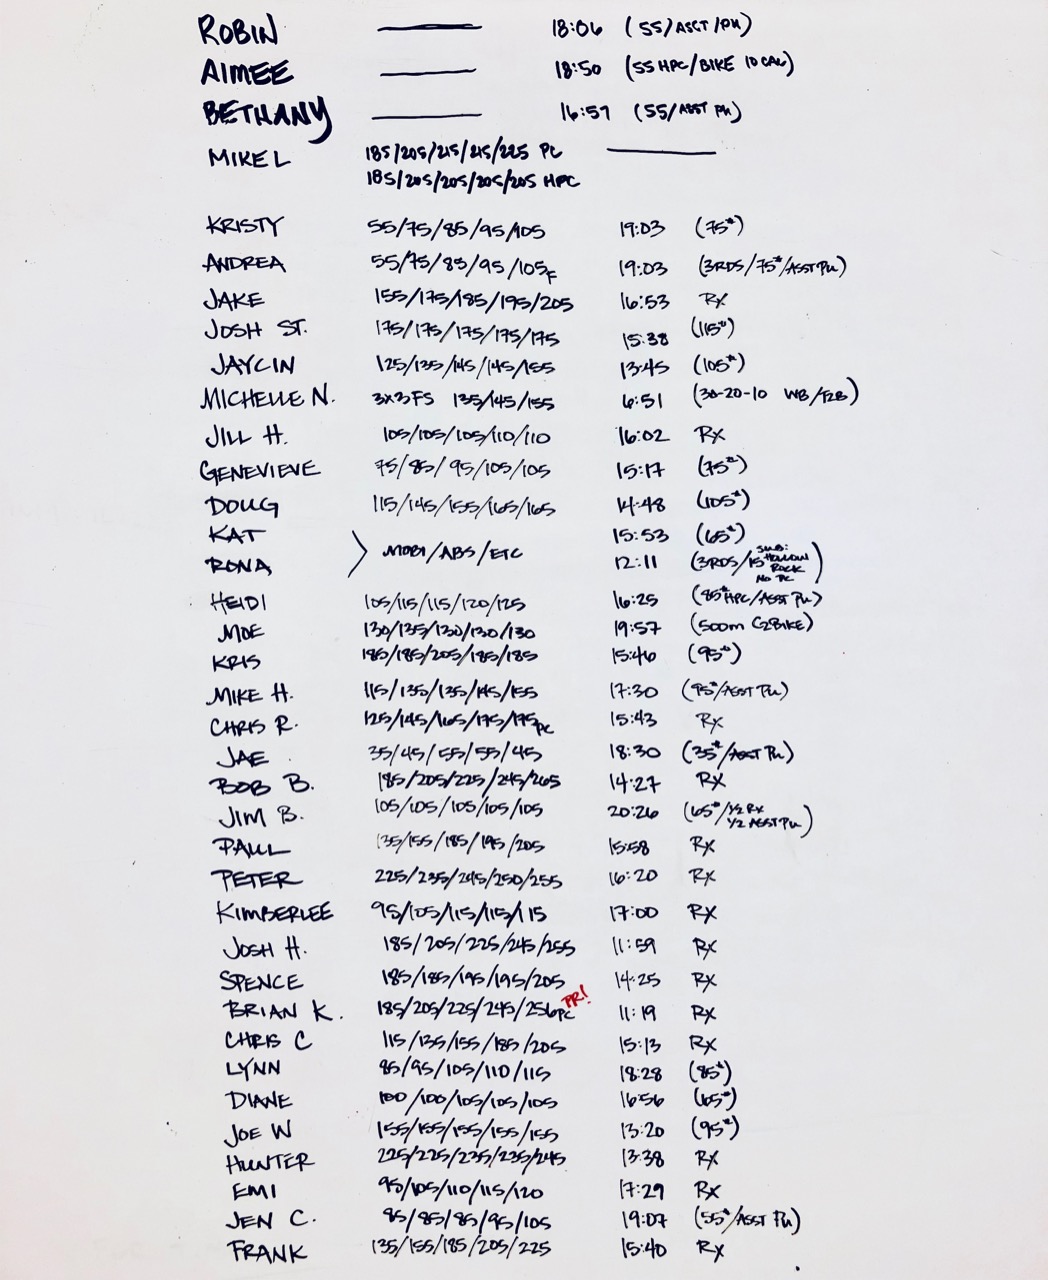 ROBIN — 18:06 (55/ASST/PU)
AIMEE — 18:50 (55 HPC/BIKE 10 CAL)
BETHANY — 16:57 (55/ASST PU)
MIKE L 185/205/215/215/225 PC —
185/205/205/205/205 HPC
KRISTY 55/75/85/95/105 19:03 (75#)
ANDREA 55/75/85/95/105F 19:03 (3RDS/75#/ASST PU)
JAKE 155/175/185/195/205 16:53 RX
JOSH ST. 175/175/175/175/175 15:38 (115#)
JAYCIN 125/135/145/145/155 13:45 (105#)
MICHELLE N. 3x3 FS 135/145/155 6:51 (30-20-10 WB/T2B)
JILL H. 105/105/105/110/110 16:02 RX
GENEVIEVE 75/85/95/105/105 15:17 (75#)
DOUG 115/145/155/165/165 14:48 (105#)
KAT 15:53 (65#)
> MOBI/ABS/ETC
RONA 12:11 (3RDS/15 SUB: HOLLOW ROCK NO PC)
HEIDI 105/115/115/120/125 16:25 (85# HPC/ASST PU)
MOE 130/135/130/130/130 19:57 (500m C2BIKE)
KRIS 185/185/205/185/185 15:46 (95#)
MIKE H. 115/135/135/145/155 17:30 (95#/ASST PU)
CHRIS R. 125/145/165/175/175PC 15:43 RX
JAE 35/45/55/55/45 18:30 (35#/ASST PU)
BOB B. 185/205/225/245/265 14:27 RX
JIM B. 105/105/105/105/105 20:26 (65#/1/2 RX 1/2 ASST PU)
PAUL 135/155/185/195/205 15:58 RX
PETER 225/235/245/250/255 16:20 RX
KIMBERLEE 95/105/115/115/115 17:00 RX
JOSH H. 185/205/225/245/255 11:59 RX
SPENCE 185/185/195/195/205 14:25 RX
BRIAN K. 185/205/225/245/256PC PR! 11:19 RX
CHRIS C 115/135/155/185/205 15:13 RX
LYNN 85/95/105/110/115 18:28 (85#)
DIANE 100/100/105/105/105 16:56 (65#)
JOE W 155/155/155/155/155 13:20 (95#)
HUNTER 225/225/235/235/245 13:38 RX
EMI 95/105/110/115/120 17:29 RX
JEN C. 85/85/85/95/105 19:07 (55#/ASST PU)
FRANK 135/155/185/205/225 15:40 RX